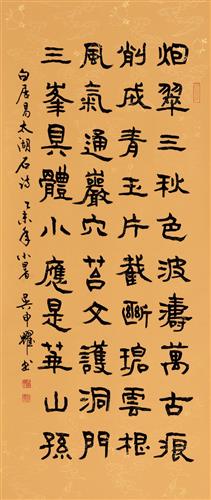 烟翠三秋色波濤萬古痕
削成青玉片截斷碧雲根
風氣通巖穴苔文護洞門
三峯具體小應是華山孫
白居易太湖石诗 乙未年小暑 吴申耀书